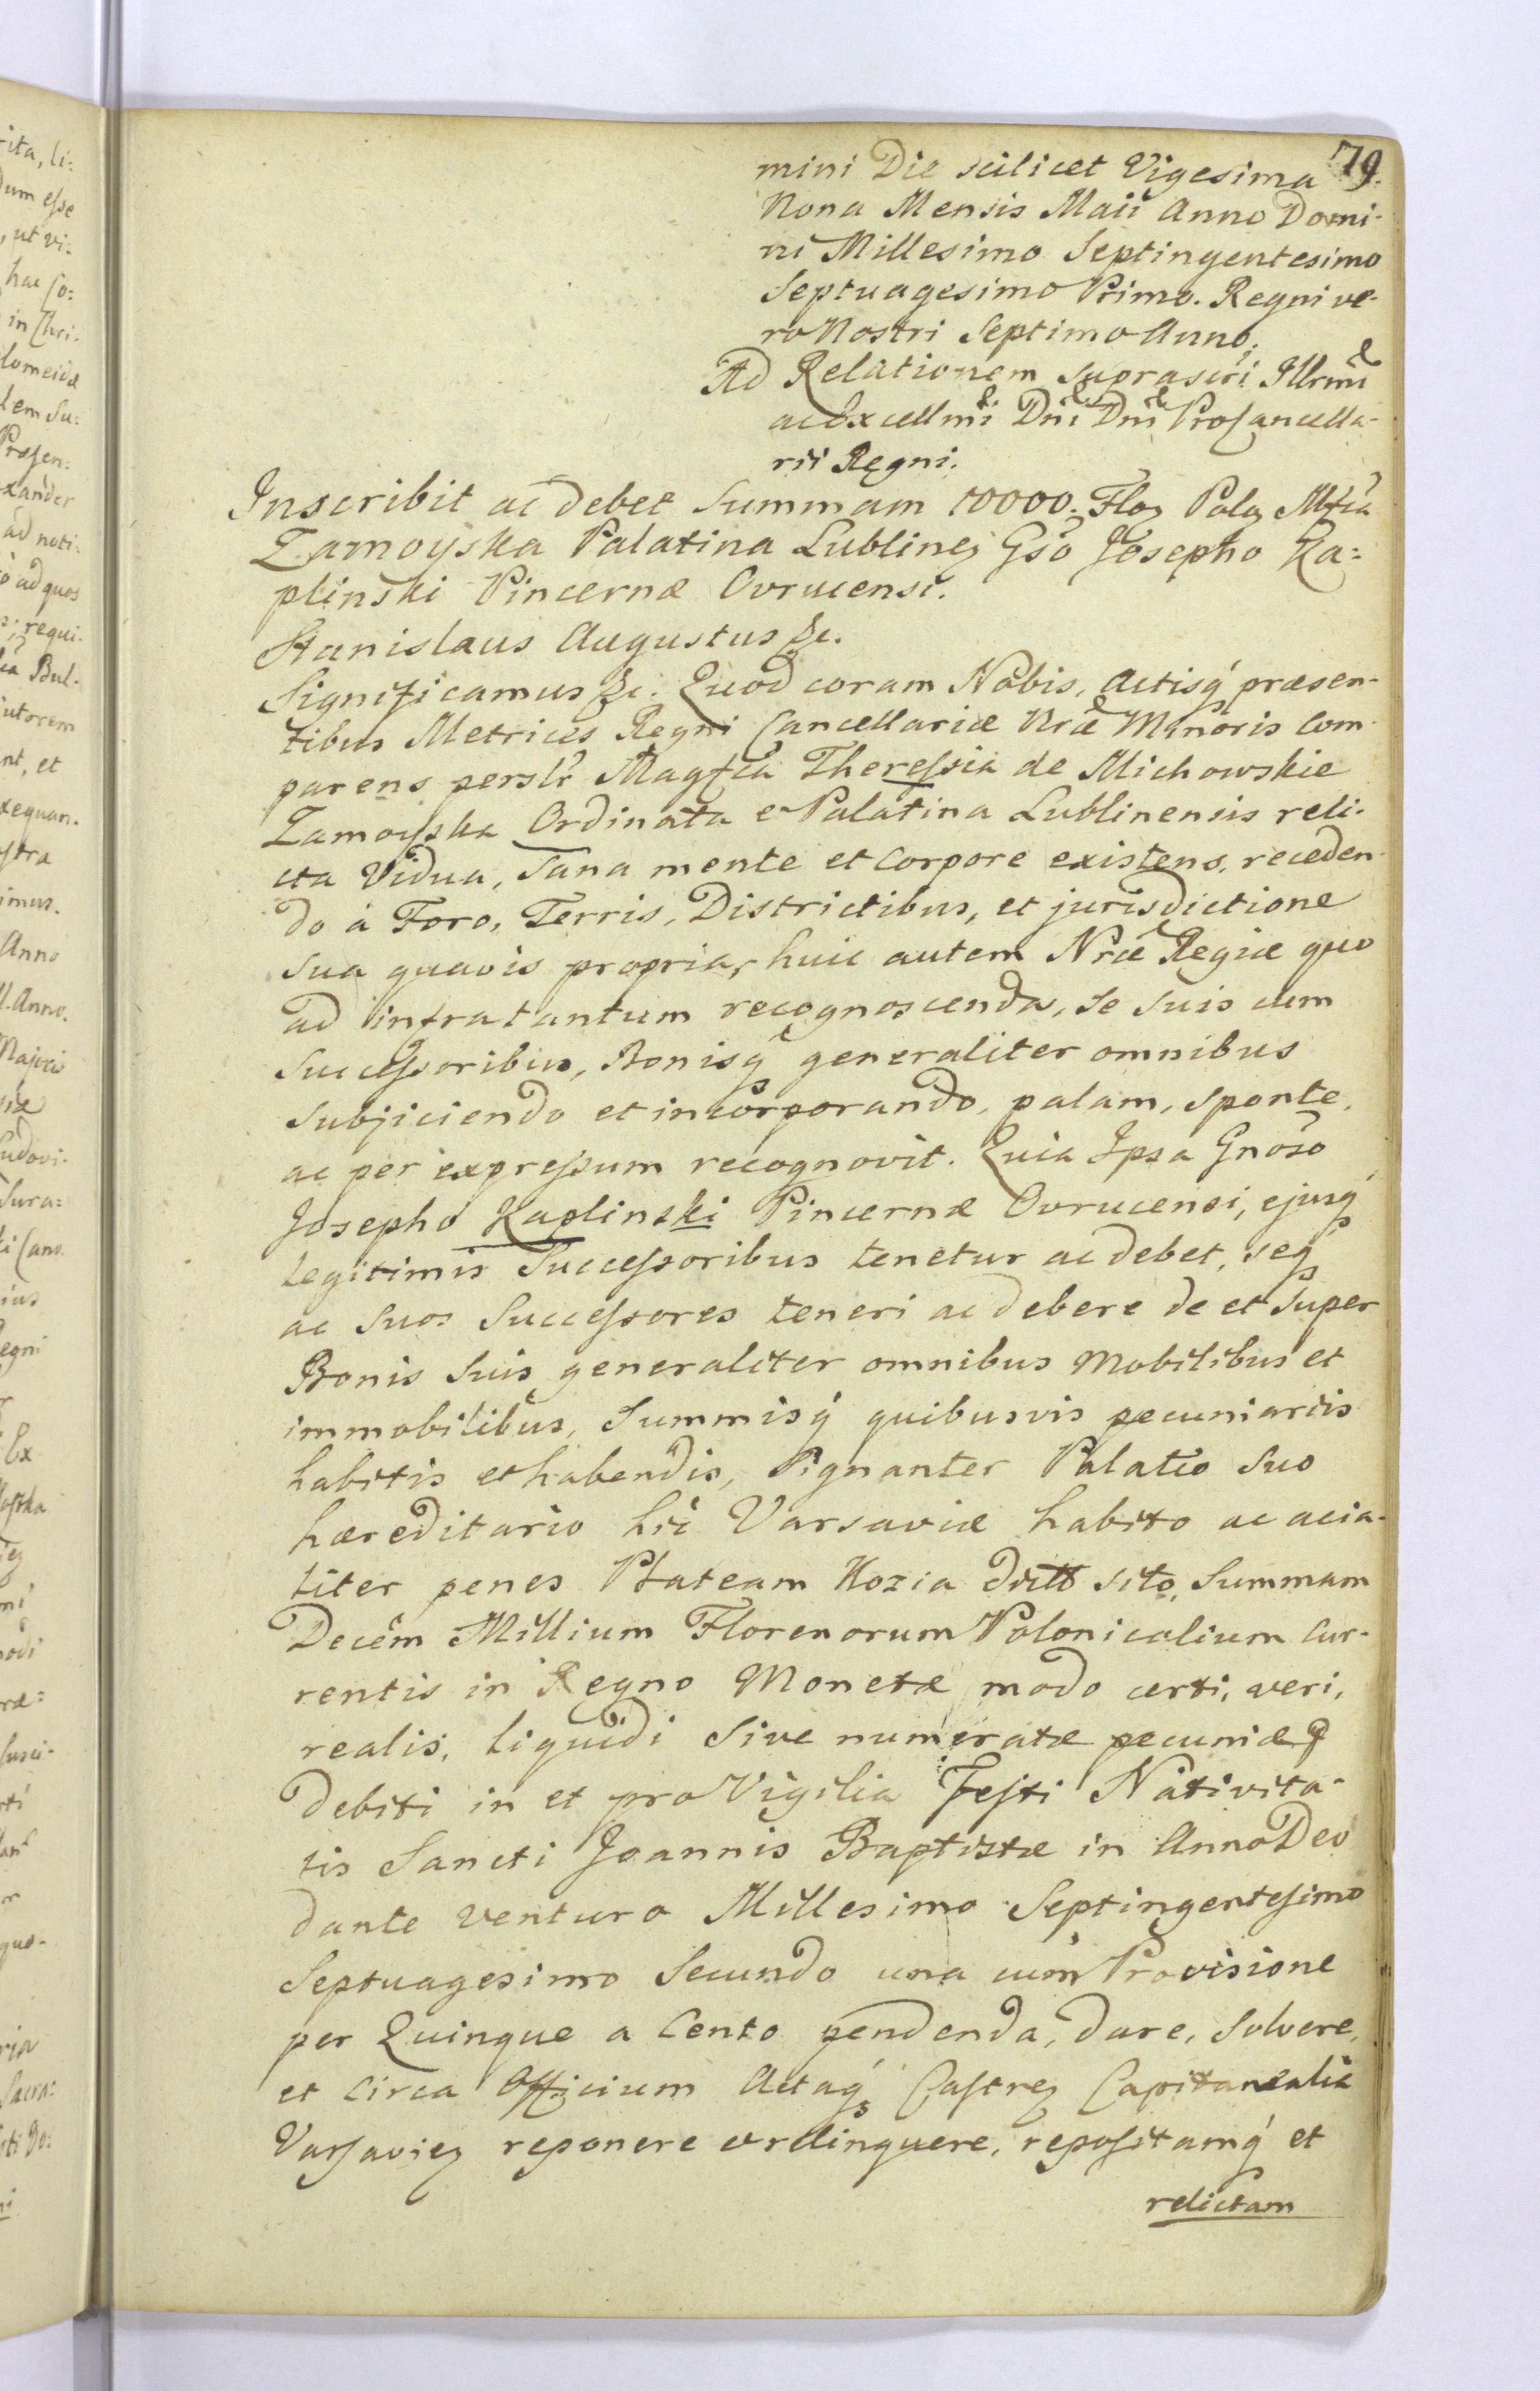 79.
mini Die scilicet Vigesima
Nona Mensis Maii Anno Domi-
ni Millesimo Septingentesimo
Septuagesimo Primo. Regni ve-
ro Nostri Septimo Anno.
Ad Relationem suprascri Illrmi
ac Excellmi Dni Dni ProCancella-
rii Regni.
Inscribit ac debet Summam 10000. Floz Poloz Mfca
Zamoyska Palatina Lublinez Gso Josepho Ka=
plinski Pincernæ Ovrucensi.
Stanislaus Augustus &c.
Significamus &c. Quod coram Nobis, Actisq́ præsen-
tibus Metrices Regni Cancellariæ Nræ Minoris Com-
parens persłr Magfca Theressia de Michowskie
Zamoyska Ordinata e Palatina Lublinensis reli-
cta Vidua, Sana mente et Corpore existens, receden-
do à Foro, Terris, Districtibus, et jurisdictione
sua quavis propria, huic autem Nræ Regiæ quo
ad infra tantum recognoscenda, Se Suis cum
Successoribus, Bonisq́ generaliter omnibus
Subjiciendo et incorporando, palam, sponte,
ac per expressum recognovit. Quia Ipsa Gnoso
Josepho Kaplinski Pincernæ Ovrucensi, ejusq́
Legitimis Successoribus tenetur ac debet, seq́
ac Suos Successores teneri ac debere de et Super
Bonis Suis generaliter omnibus Mobilibus et
immobilibus, Summisq́ quibusvis pecuniariis
habitis et habendis, Signanter Palatio Suo
hæreditario hic Varsaviæ habito ac acia-
liter penes Plateam Kozia dictt sito, Summam
Decem Millium Florenorum Polonicalium Cur-
rentis in Regno Monetæ modo certi, veri,
realis, liquidi Sive numeratæ pecuniæ
Debiti in et pro Vigilia Festi Nativita-
tis Sancti Joannis Baptistæ in Anno Deo
dante venturo Millesimo Septingentesimo
Septuagesimo Secundo una cum Provisione
per Quinque a Cento pendenda, dare, Solvere,
et circa Officium Actaq́ Castrez Capitanealia
Varsaviez reponere erelinquere, repositamq́ et
relictam